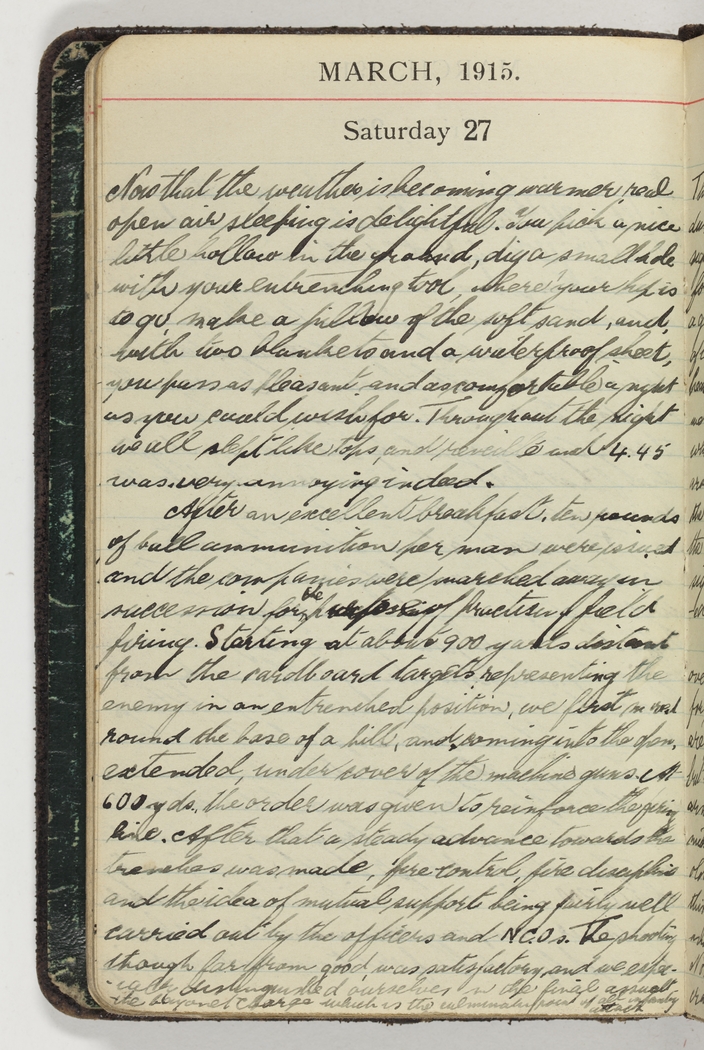 MARCH, 1915.
Saturday 27
Now that the weather is becoming warmer, real
open air sleeping is delightful. You pick a nice
little hollow in the ground, dig a small hole
with your entrenching tool, where your hip is
to go, make a pillow of the soft sand, and,
with two blankets and a waterproof sheet,
you pass as pleasant and as comfortable a night
as you could wish for. Throughout the night
we all slept like tops, and reveille at 4.45
was very annoying indeed.
After an excellent breakfast, ten rounds
of ball ammunition per man were issued
and the companies were marched away in
succession for the purpose of practising field
firing. Starting at about 900 yards distant
from the cardboard targets representing the
enemy in an entrenched position, we first moved
round the base of a hill, and, coming into the open,
extended, under cover of the machine guns. At
600 yds. the order was given to reinforce the firing
line. After that a steady advance towards the
trenches was made, fire control, fire discipline
and the idea of mutual support being fairly well
carried out by the officers and N.C.O.s. The shooting
though far from good, was satisfactory, and we espec-
ially distinguished ourselves in the final assault
the bayonet charge which is the culminating point of all infantry
attack